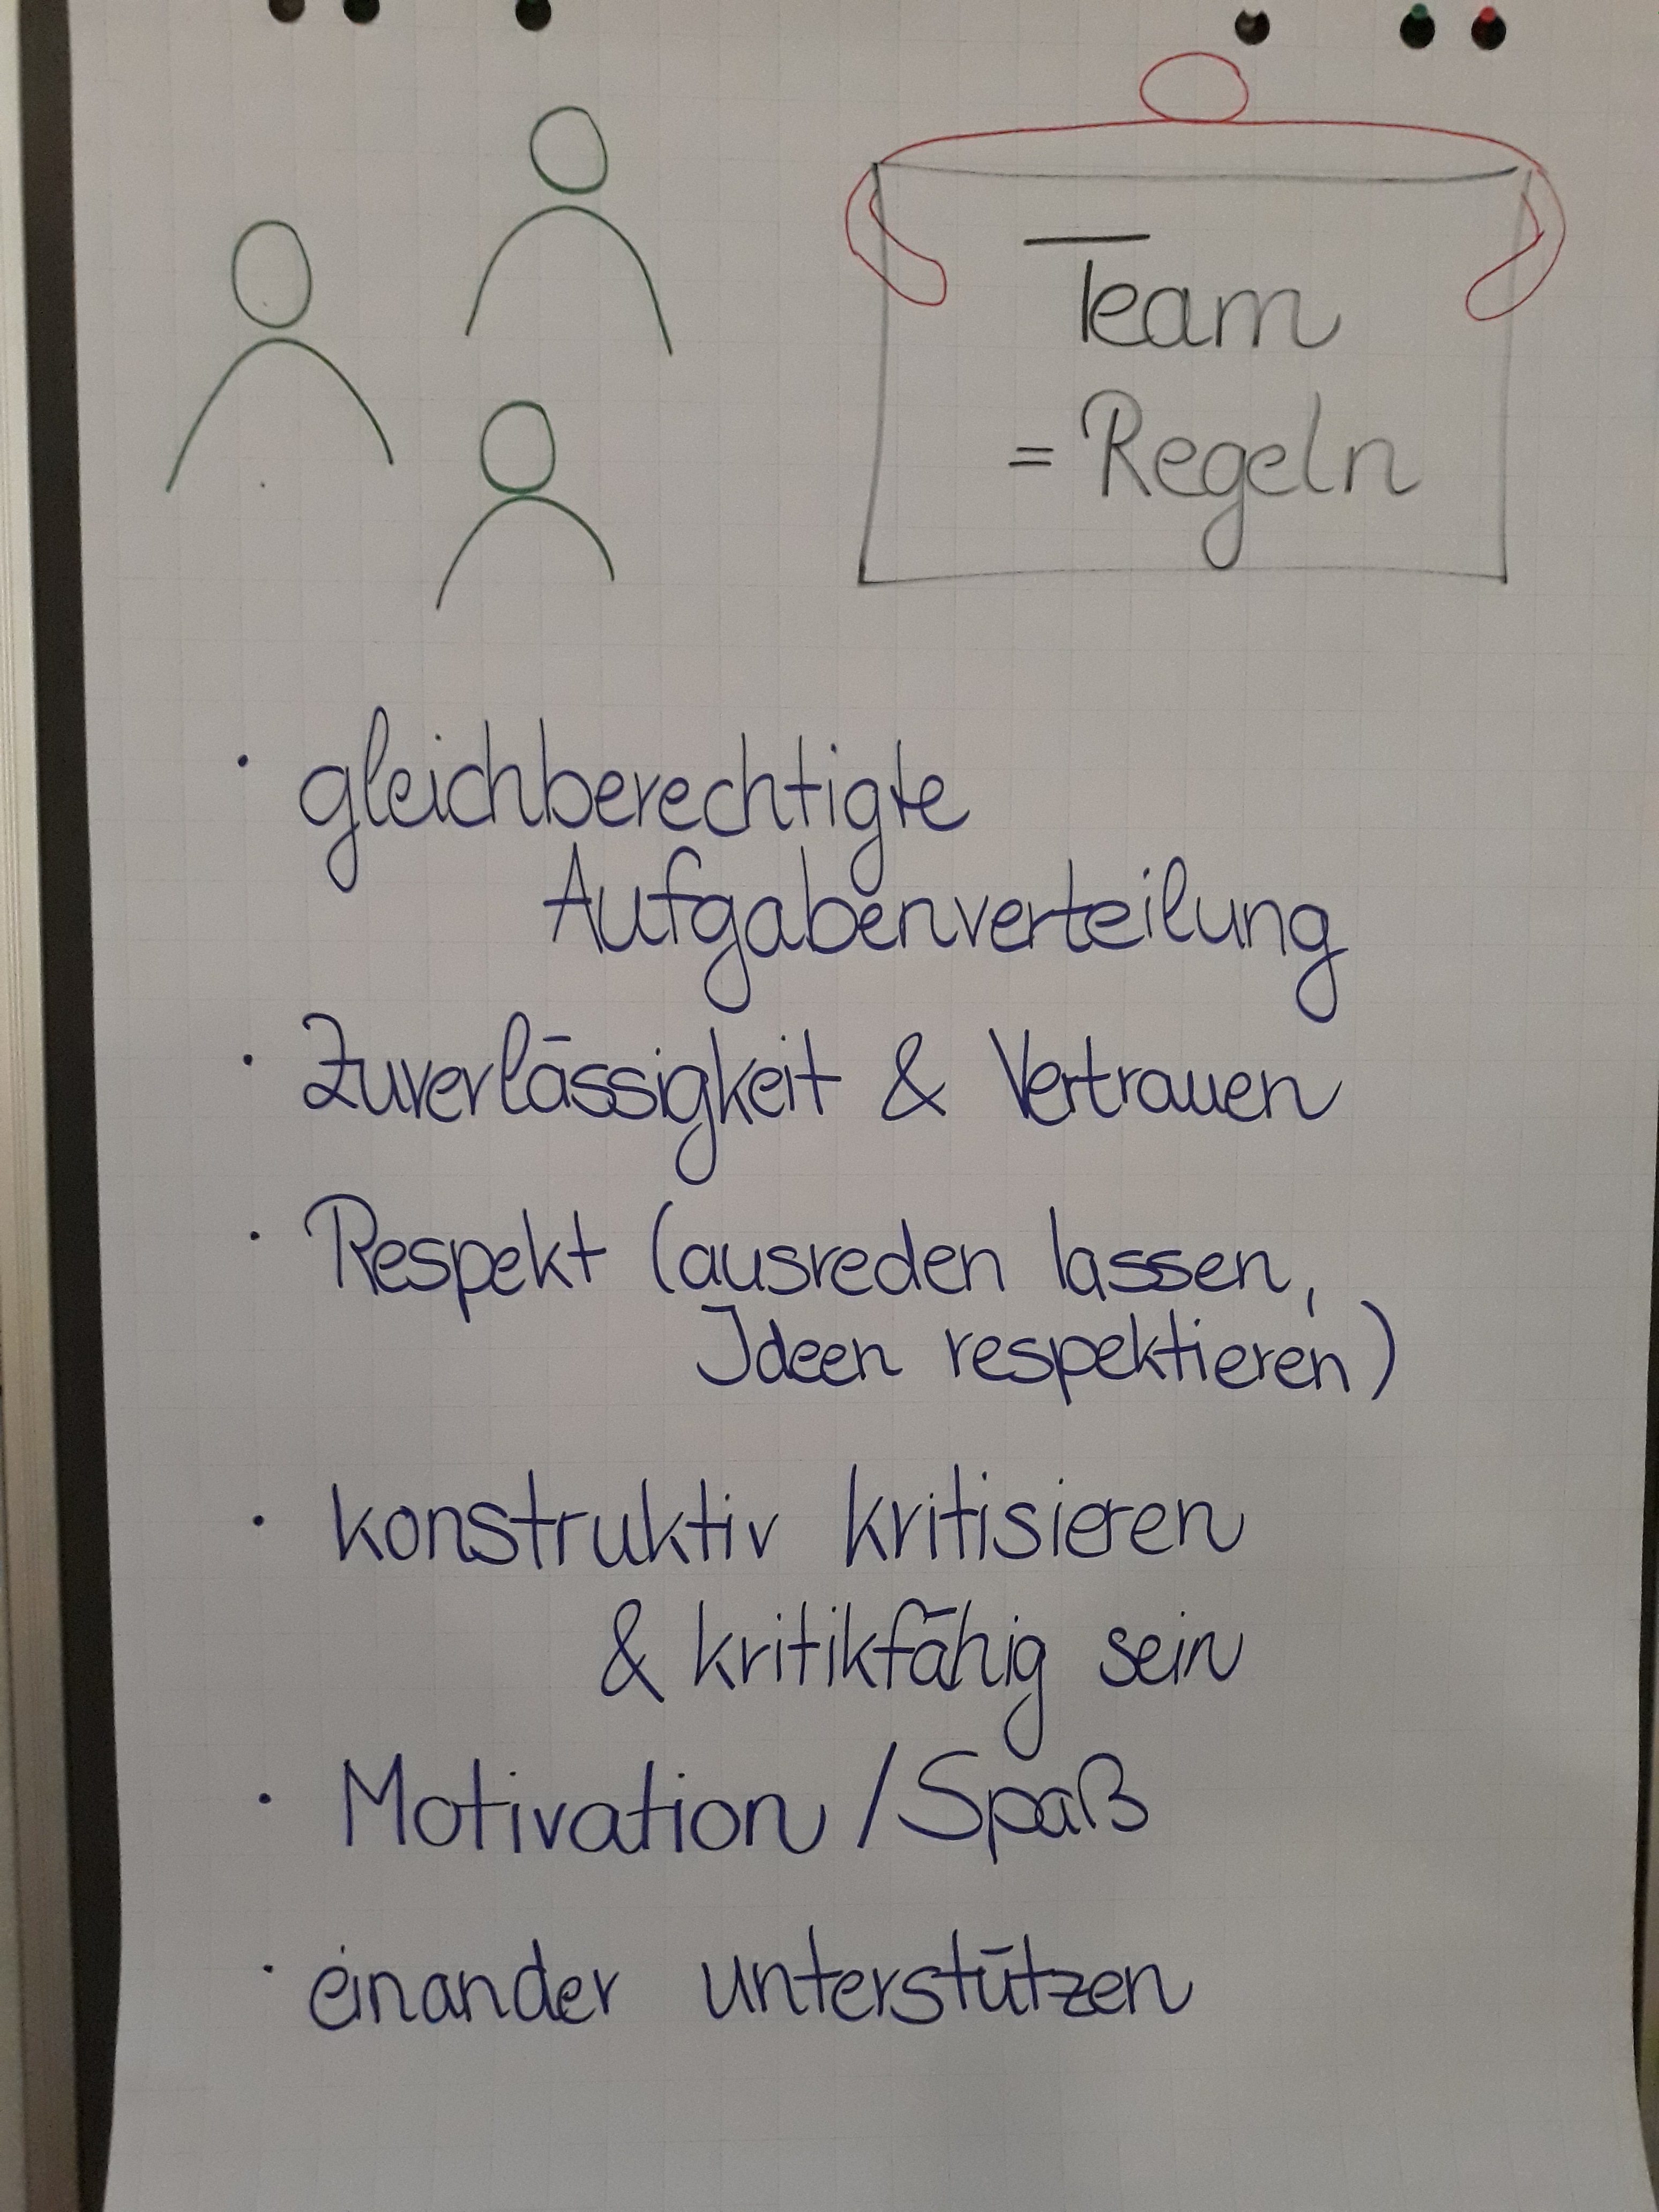 Team
= Regeln
· gleichberechtigte
Aufgabenverteilung
· Zuverlässigkeit & Vertrauen
· Respekt (ausreden lassen,
Ideen respektieren)
· konstruktiv kritisieren
& kritikfähig sein
· Motivation / Spaß
· einander unterstützen